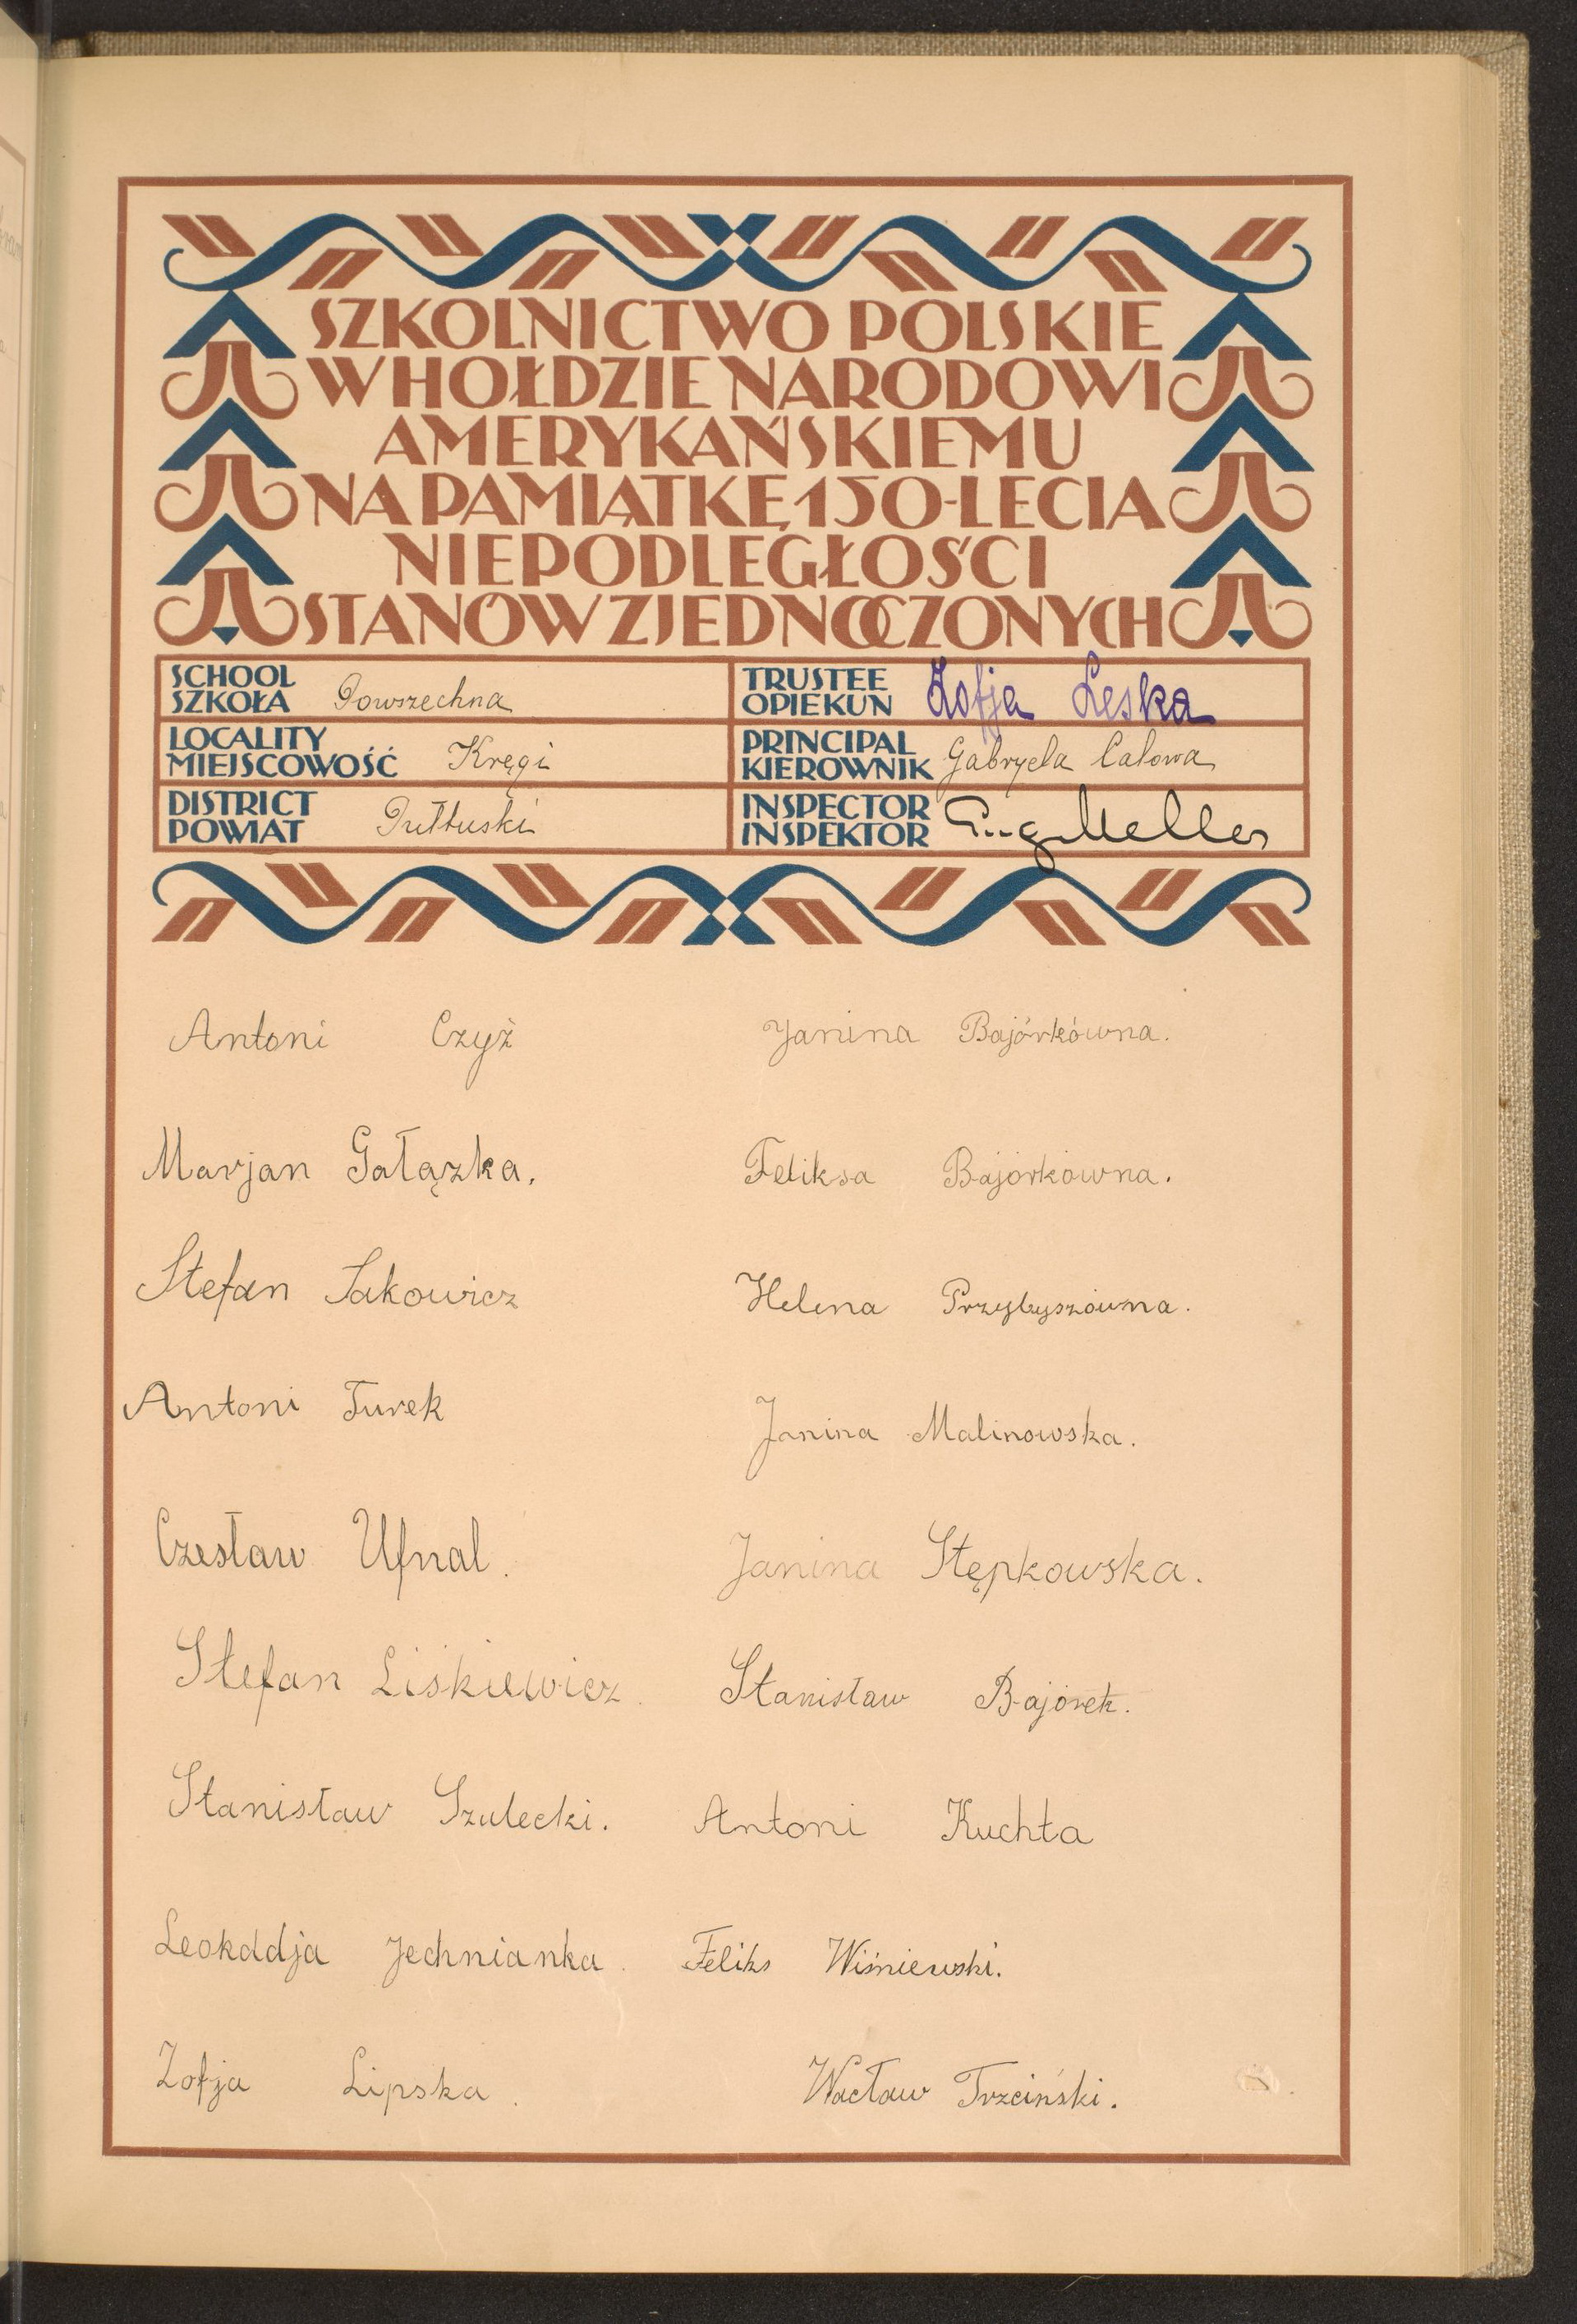 SZKOLNICTWO POLSKIE
W HOŁDZIE NARODOWI
AMERYKAŃSKIEMU
NA PAMIĄTKĘ 150-LECIA
NIEPODLEGŁOŚCI
STANÓW ZJEDNOCZONYCH
SCHOOL
SZKOŁA Powszechna
TRUSTEE
OPIEKUN Zofja Leska
LOCALITY
MIEJSCOWOŚĆ Kręgi
PRINCIPAL
KIEROWNIK Gabryela Calowa
DISTRICT
POWIAT Pułtuski
INSPECTOR
INSPEKTOR Eug. Meller
Antoni Czyż
Janina Bajórkówna.
Marjan Gałązka.
Feliksa Bajórkówna.
Stefan Sakowicz
Helena Przybyszówna.
Antoni Turek
Janina Malinowska.
Czesław Ufnal.
Janina Stępkowska.
Stefan Liśkiewicz.
Stanisław Bajórek.
Stanisław Szulecki.
Antoni Kuchta
Leokddja Jechnianka.
Feliks Wiśniewski.
Zofja Lipska.
Wacław Trzciński.